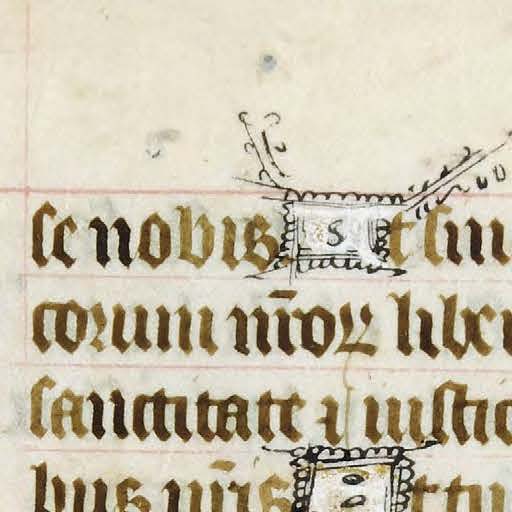 se nobis St sin
corum nr̄oꝝ liber
sanctitate ⁊ iustic
bus nr̄is t tu